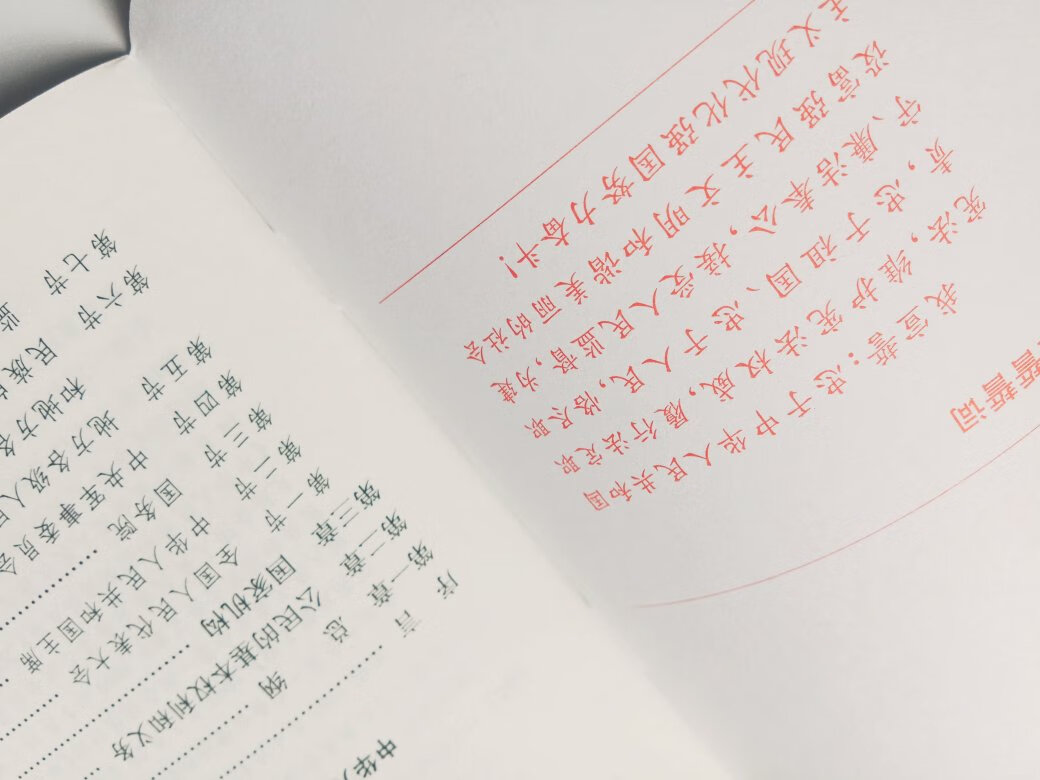 誓誓词
我宣誓：忠于中华人民共和国
宪法，维护宪法权威，履行法定职
责，忠于祖国、忠于人民，恪尽职
守、廉洁奉公，接受人民监督，为建
设富强民主文明和谐美丽的社会
主义现代化强国努力奋斗！
中华
序言
第一章 总纲
第二章 公民的基本权利和义务
第三章 国家机构
第一节 全国人民代表大会
第二节 中华人民共和国主席
第三节 国务院
第四节 中央军事委员会
第五节 地方各级人民
和地方各
第六节 民族
第七节 监